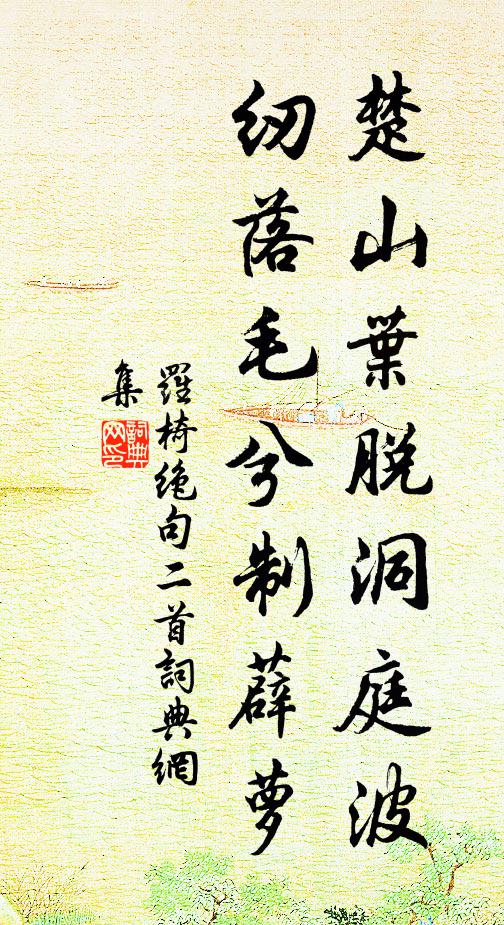 楚山葉脱洞庭波
纫落毛兮制薜萝
羅椅绝句二首詞典網
集
詞典网印